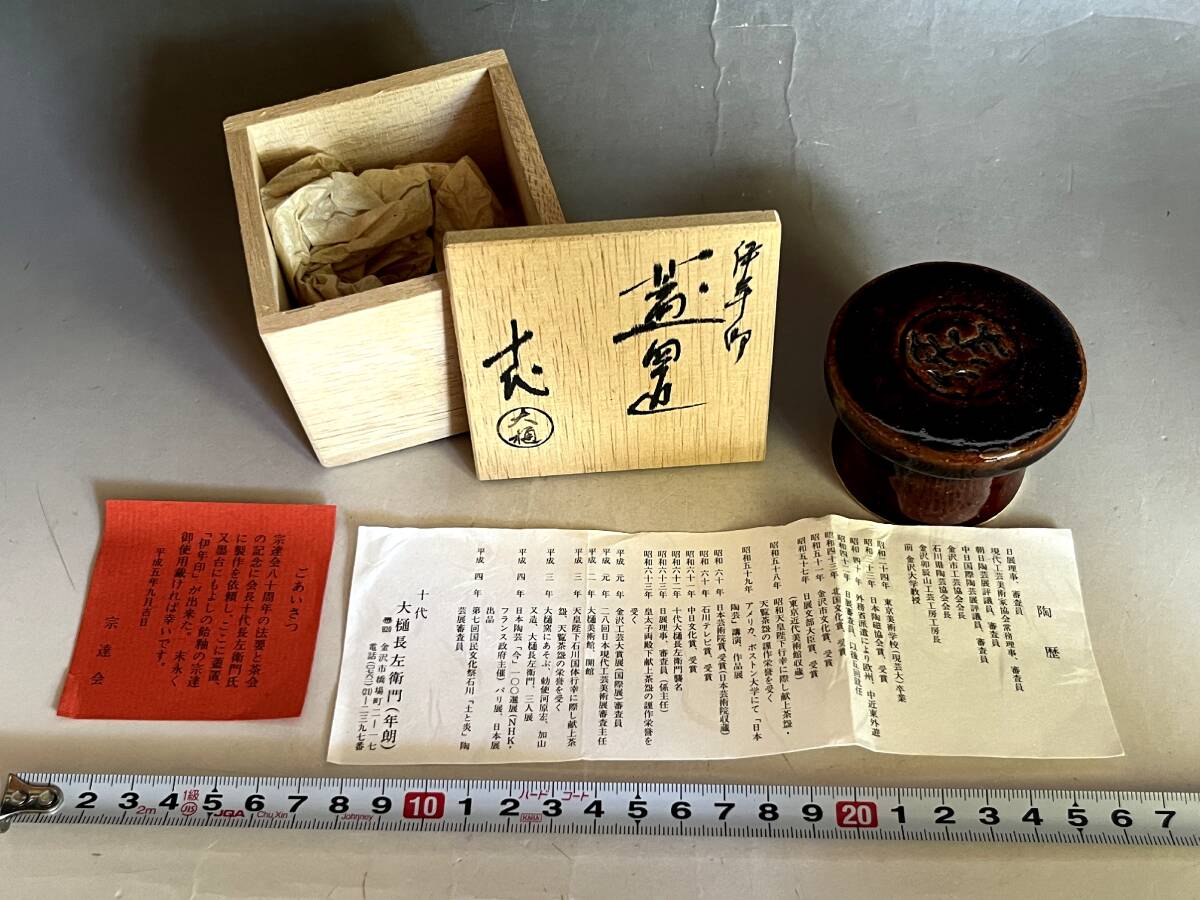 伊年印
蓋置
十代
大樋
ごあいさつ
宗達会八十周年の法要と茶会
の記念に会長十代長左衛門氏
に製作を依頼し、ここに蓋置、
又墨台にもよしの飴釉の宗達
「伊年印」が出来た。末永く
御使用戴ければ幸いです。
平成五年九月吉日
宗達会
陶歴
日展理事、審査員
現代工芸美術家協会常務理事、審査員
朝日陶芸展評議員、審査員
中日国際陶芸展評議員、審査員
金沢市工芸協会会長
石川県陶芸協会会長
金沢卯辰山工芸工房工房長
前 金沢大学教授
昭和二十四年 東京美術学校(現芸大)卒業
昭和三十三年 日本陶磁協会賞、受賞
昭和四十年 外務省派遣により欧州、中近東外遊
昭和四十二年 日展審査員、以後五回就任
昭和四十三年 北国文化賞、受賞
昭和五十一年 金沢市文化賞、受賞
昭和五十七年 日展文部大臣賞、受賞
(東京近代美術館収蔵)
昭和五十八年 昭和天皇陛下行幸に際し献上茶盌・
天覧茶盌の謹作栄誉を受く
昭和五十九年 アメリカ、ボストン大学にて「日本
陶芸」講演、作品展
昭和六十年 日本芸術院賞、受賞(日本芸術院収蔵)
昭和六十年 石川テレビ賞、受賞
昭和六十一年 中日文化賞、受賞
昭和六十二年 十代大樋長左衛門襲名
昭和六十三年 日展理事、審査員(係主任)
昭和六十三年 皇太子両殿下献上茶盌の謹作栄誉を
受く
平成元年 金沢工芸大賞展(国際展)審査員
平成元年 二八回日本現代工芸美術展審査主任
平成二年 大樋美術館、開館
平成三年 天皇陛下石川国体行幸に際し献上茶
盌、天覧茶盌の栄誉を受く
平成三年 大樋窯にあそぶ、勅使河原宏、加山
又造、大樋長左衛門、三人展
平成四年 日本陶芸「今」一〇〇選展(NHK・
フランス政府主催)パリ展、日本展
出品
平成四年 第七回国民文化祭石川「土と炎」陶
芸展審査員
十代
大樋長左衛門(年朗)
金沢市橋場町二―一七
電話(〇七六二)(21)―二三九七番
2 3 4 5 6 7 8 9 10 1 2 3 4 5 6 7 8 9 20 1 2 3 4 5 6 7
2m 1級 JIS JGA Chu Xin Johnney KARA ハードコート